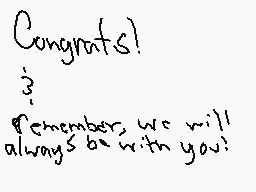 Congrats!
&
remember, we will
always be with you!